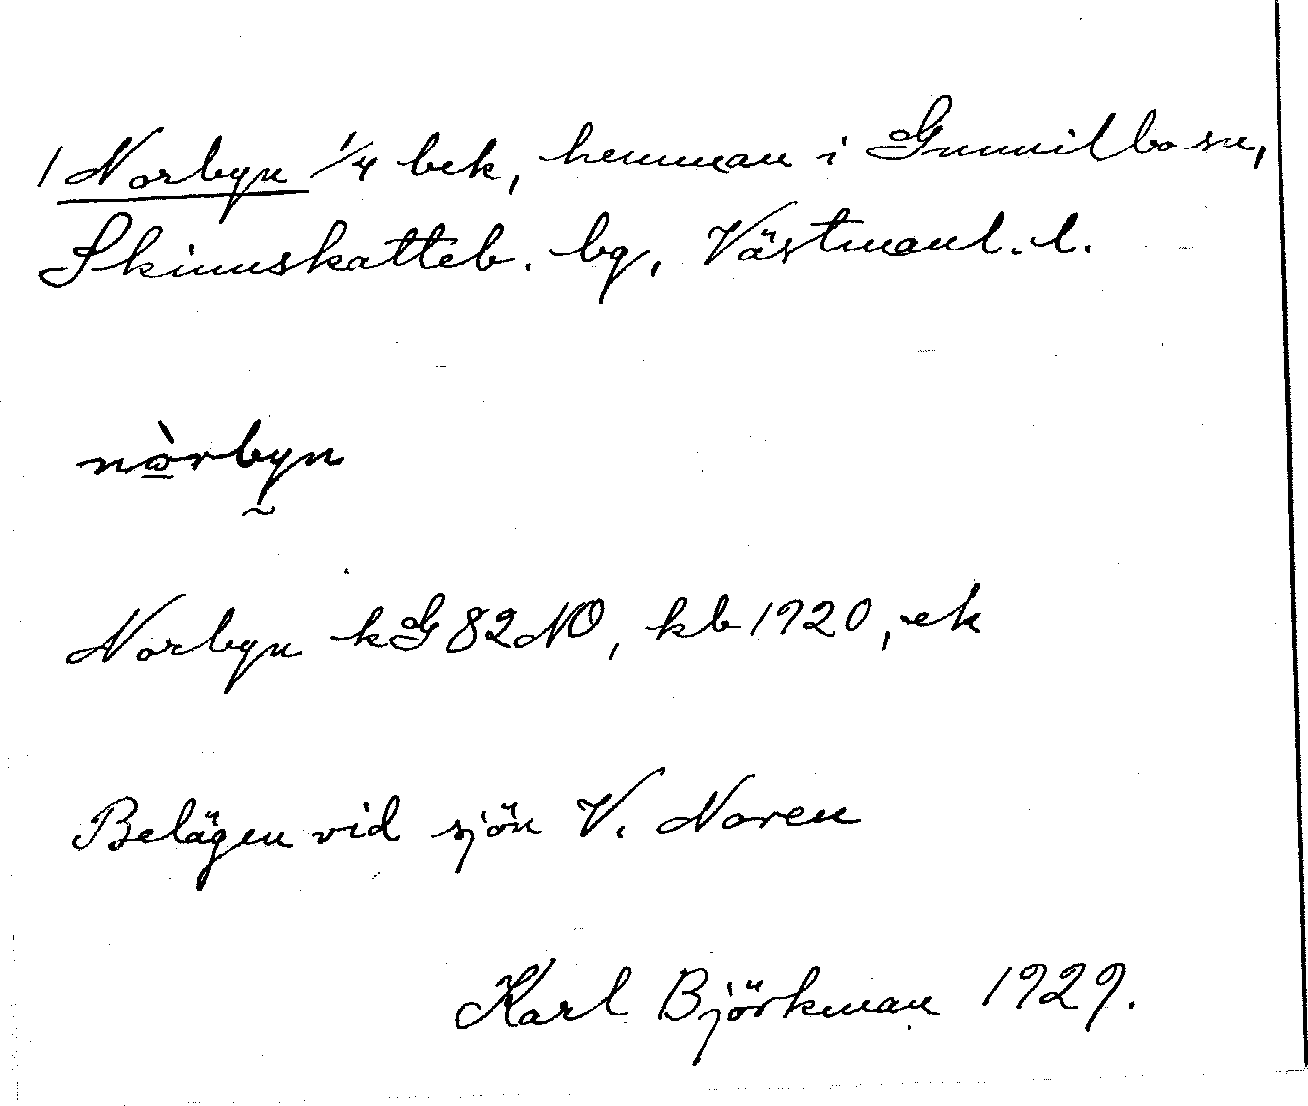 / Norbyn 1/4 bek, hemman i Gunnilbo sn,
Skinnskatteb. bg, Västmanl. l.
nòrbyn
Norbyn kG 82 NO, kb 1920, ek
Belägen vid sjön V. Noren
Karl Björkman 1929.